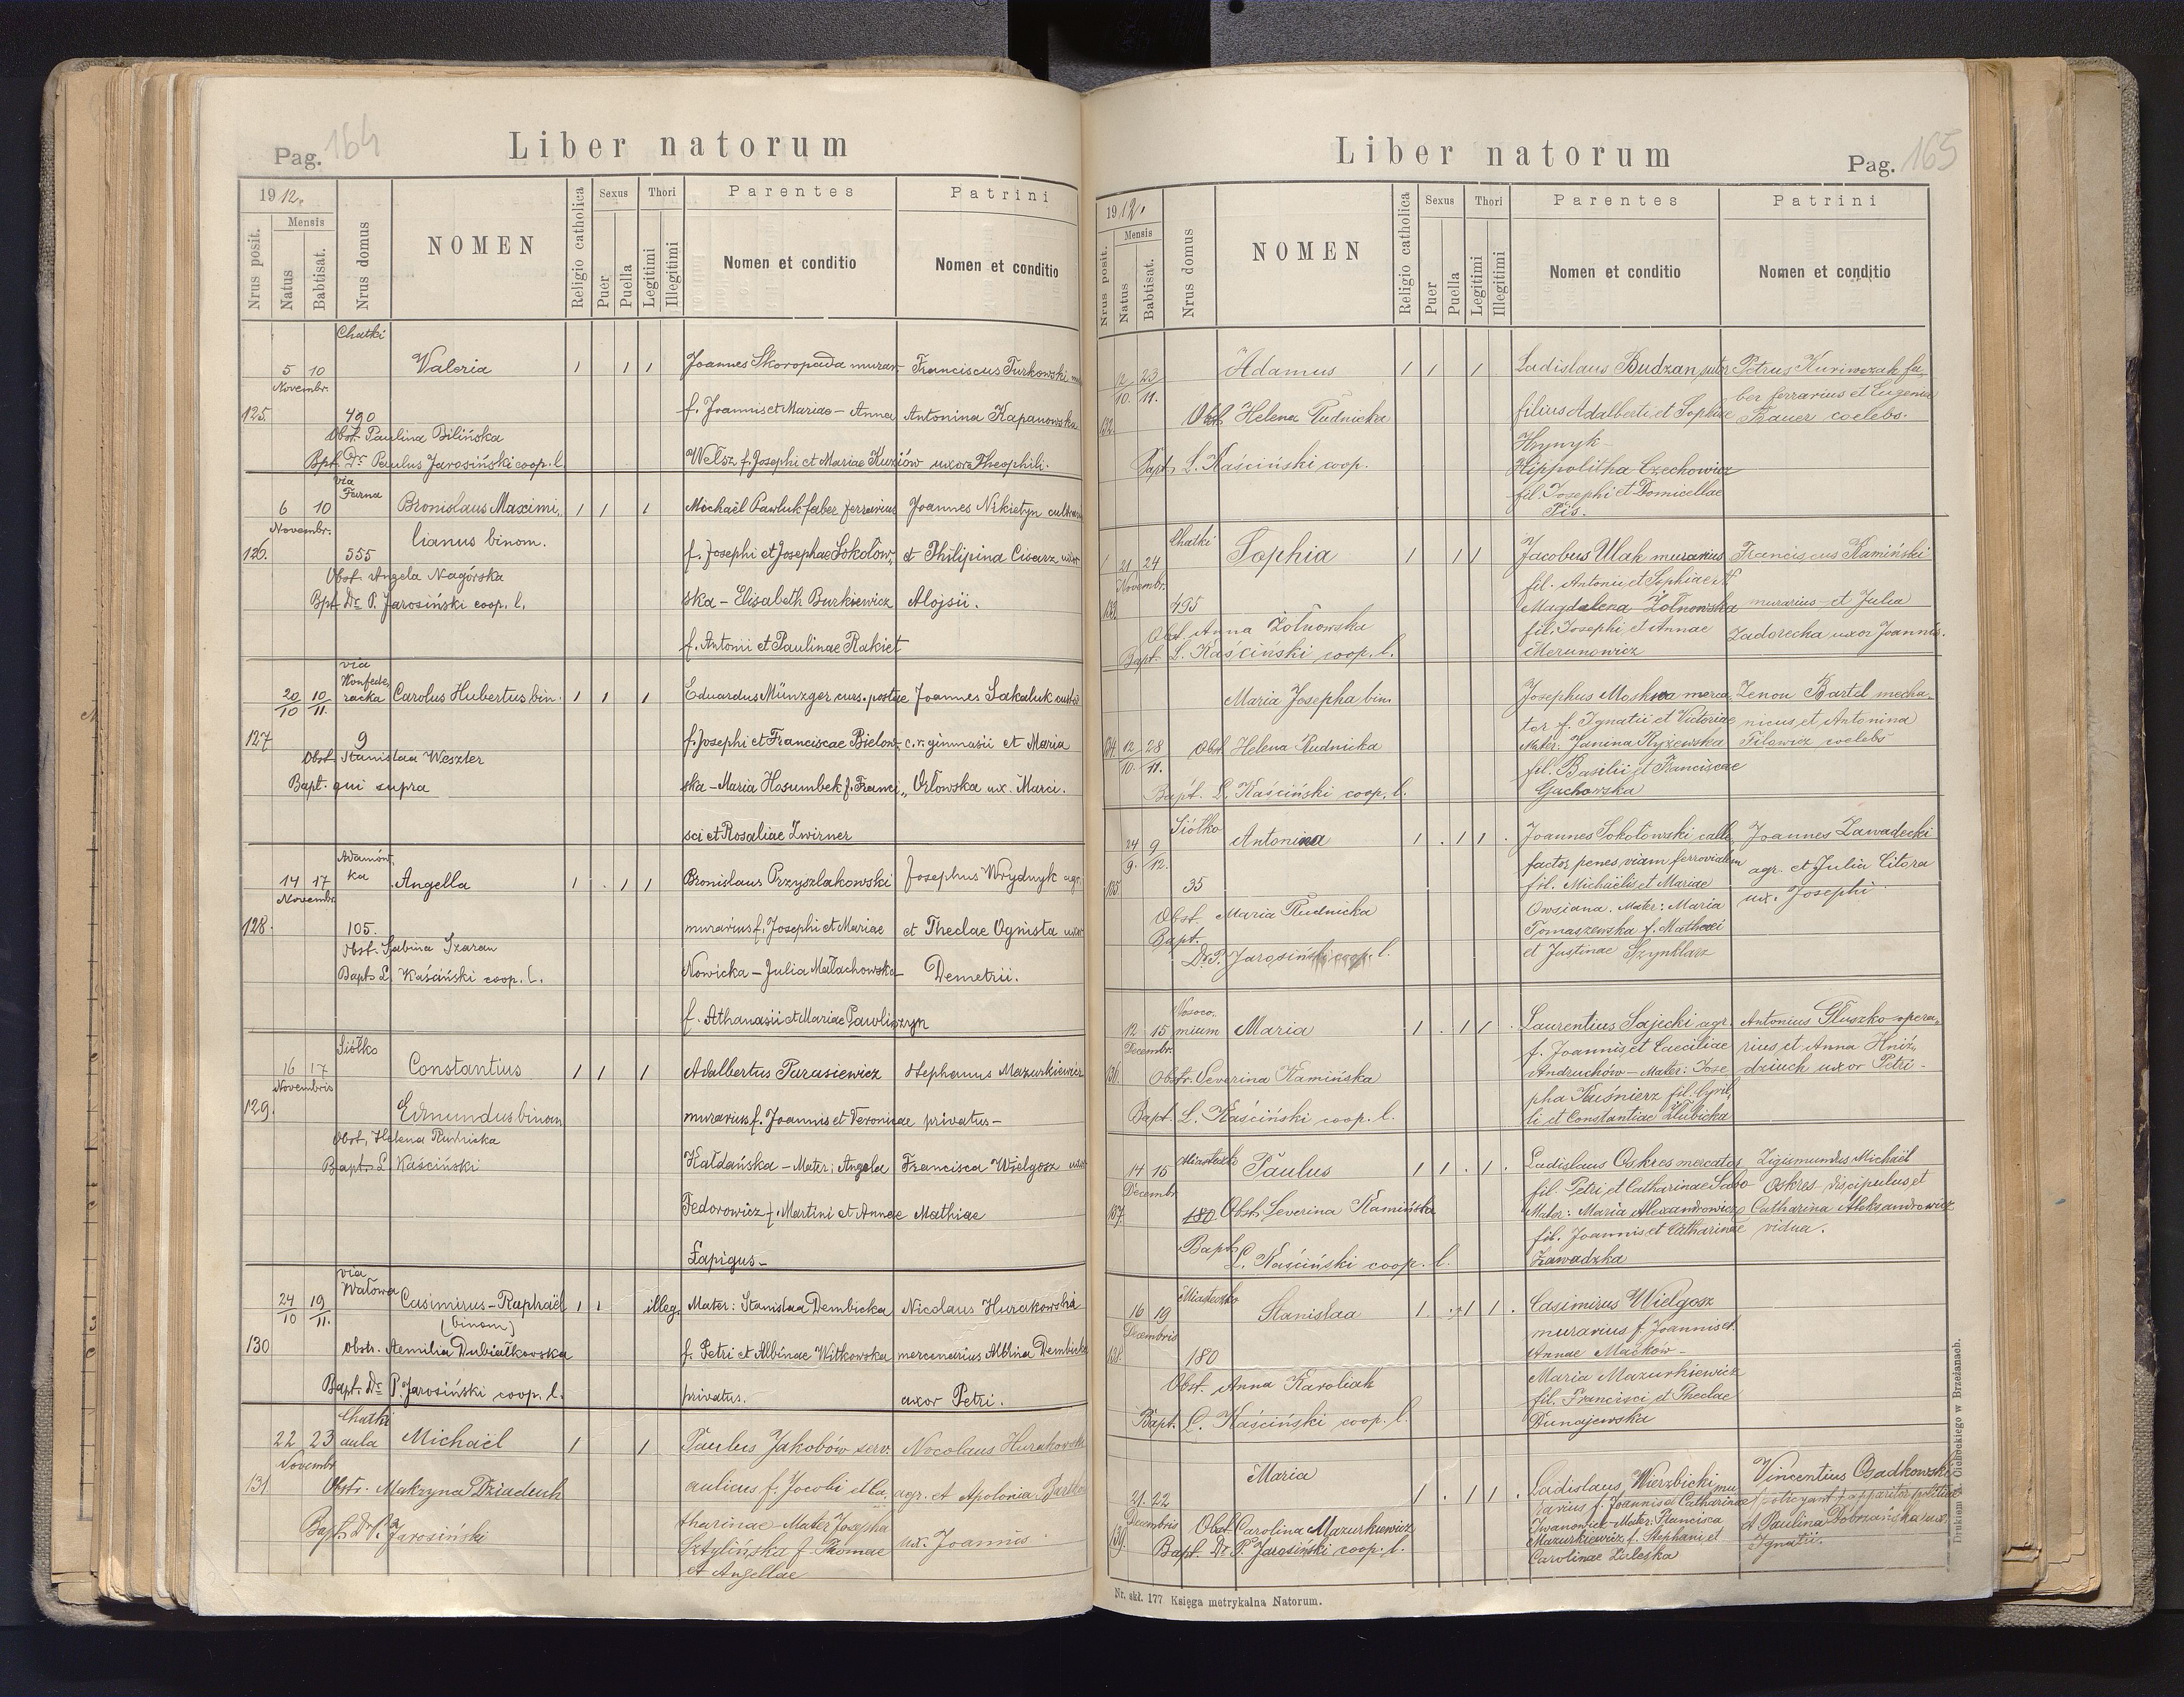 Pag. 164
Liber natorum
1912.
Nrus posit.
Mensis
Natus
Babtisat.
Nrus domus
NOMEN
Religio catholica
Sexus
Puer
Puella
Thori
Legitimi
Illegitimi
Parentes
Nomen et conditio
Patrini
Nomen et conditio
Chatki
5 10 Valeria 1 1 1 Joannes Skoropada murar. Franciscus Turkowski
Novembr.
125. 490 f. Joannis et Mariae - Anna Antonina Kapanowska
Obst. Paulina Bilińska
Bpt. Dr Paulus Jarosiński coop. l. Welsz f. Josephi et Mariae Kuziów uxor Theophili.
via
Farna
6 10 Bronislaus Maximi„ 1 1 1 Michaël Pawluk faber ferrarius Joannes Nikietyn
Novembr. lianus binom.
126. 555 f. Josephi et Josephae Sokolow„ et Philipina Cisarz uxor
Obst. Angela Nagórska
Bpt. Dr P. Jarosiński coop. l. ska - Elisabeth Burkiewicz Alojsii.
f. Antonii et Paulinae Rakiet
via
Konfede„
20/10 10/11. racka Carolus Hubertus bin. 1 1 1 Eduardus Münzger curs. postae Joannes Sakaluk custos
127 9 f. Josephi et Franciscae Bielow„ c. r. gimnasii et Maria
Obst. Stanislaa Weszter
Bapt. qui supra ska - Maria Hosumbek f. Franci„ Orłowska ux. Marci.
sci et Rosaliae Zwirner
Adamów„
ka
14 17 Angella 1 . 1 1 Bronislaus Przyszlakowski Josephus Wrydnyk agr.
Novembr.
128. 105. murarius f. Josephi et Mariae et Theclae Ognista uxor
Obst. Sabina Szaran
Bapt. L. Kaściński coop. l. Nowicka - Julia Małachowska - Demetrii.
f. Athanasii et Mariae Pawliszyn
Siółko
16 17 Constantius 1 1 1 Adalbertus Parasiewicz Stephanus Mazurkiewicz
Novembris
129. Edmundus binom murarius f. Joannis et Veronicae privatus -
Obst. Helena Rudnicka
Bapt. L. Kaściński Kałdańska - Mater: Angela Francisca Wielgosz uxor
Fedorowicz f. Martini et Annae Mathiae
Łapigus -
via
Wałowa
24/10 19/11. Casimirus - Raphaël 1 1 illeg. Mater: Stanislaa Dembicka Nicolaus Hurakowski
(binom)
130 Obstr. Aemilia Dubiałkowska f. Petri et Albinae Witkowska mercenarius Albina Dembicka
Bapt. Dr P. Jarosiński coop. l. privatus. uxor Petri.
Chatki
22 23 aula Michaël 1 1 Paulus Jakobów serv. Nocolaus Hurakowski
Novembr.
131 Obstr. Makryna Dziaduch aulicus f. Jacobi et Ca„ agr. et Apolonia
Bapt. Dr P. Jarosiński tharinae Mater Josepha ux. Joannis
Sztylińska f. Thomae
et Angellae
Liber natorum
Pag. 165
1912.
Nrus posit.
Mensis
Natus
Babtisat.
Nrus domus
NOMEN
Religio catholica
Sexus
Puer
Puella
Thori
Legitimi
Illegitimi
Parentes
Nomen et conditio
Patrini
Nomen et conditio
12/10. 23/11. Adamus 1 1 1 Ladislaus Budzan sutor Petrus Kuriwczak fa„
ber ferrarius et Eugenia
132. Obst. Helena Rudnicka filius Adalberti et Sophiae Bauer coelebs.
Hrynyk -
Bapt. L. Kaściński coop. Hippolitha Czechowicz
fil. Josephi et Domicellae
Pis.
Chatki
21 24 Sophia 1 1 1 Jacobus Ulak murarius Franciscus Kamiński
Novembr. fil. Antonii et Sophiae N
133. 495 Magdalena Żołnowska murarius - et Julia
Obst. Anna Żołnowska fil. Josephi et Annae Zadorecha uxor Joannis.
Bapt. L. Kaściński coop. l. Herunowicz
Maria Josepha bin. Josephus Moskwa merca„ Zenon Bartel mecha„
tor f. Ignatii et Victoriae nicus et Antonina
134 12/10. 28/11. Obst. Helena Rudnicka Mater: Janina Ryżewska Filowicz coelebs
fil. Basilii et Franciscae
Bapt. L. Kaściński coop. l. Gachowska
Siółko
24/9. 9/12. Antonina 1 . 1 1 . Joannes Sokołowski calle„ Joannes Zawadecki
factor penes viam ferrovialem agr. et Julia Citora
135 35 fil. Michaëlis et Mariae ux. Josephi
Obst. Maria Rudnicka Owsiana. Mater: Maria
Bapt. Tomaszewska f. Mathaei
Dr P. Jarosiński coop. l. et Justinae Szynklarz
Nosoco„
12 15 mium Maria 1 . 1 1 . Laurentius Sajecki agr. Antonius Głuszko opera„
Decembr. f. Joannis et Caeciliae rius et Anna Hniź„
136. Obstr. Severina Kamińska Andruchów - Mater: Jose„ dziuch uxor Petri -
pha Kuśnierz fil. Cyril„
Bapt. L. Kaściński coop. l. li et Constantiae Złubicka
14 15 Miasteczko Paulus 1 1 . 1 . Ladislaus Oskres mercator Zigismundus Michaël
Decembr. fil. Petri et Catharinae Sabo Oskres discipulus et
137. 180 Obst. Severina Kamińska Mater: Maria Alexandrowicz Catharina Aleksandrowicz
fil. Joannis et Catharinae vidua.
Bapt. L. Kaściński coop. l. Zawadzka
Miasteczko
16 19 Stanisłaa 1 . 1 1 . Casimirus Wielgosz
Decembris murarius f. Joannis et
138. 180 Annae Maćków -
Obst. Anna Karoliak Maria Mazurkiewicz
fil. Francisci et Theclae
Bapt. L. Kaściński coop. l. Dunajewska
Maria
21. 22 1 . 1 1 . Ladislaus Wierzbicki mu„ Vincentius Osadkowski
Decembris rarius f. Joannis et Catharinae (policyant) apparitor politiae
139. Obst. Carolina Mazurkiewicz Iwanowicz - Mater: Francisca et Paulina Dobrzańska ux.
Bapt. Dr P. Jarosiński coop. l. Mazurkiewicz f. Stephani et Ignatii.
Carolinae Zaleska
Nr. skł. 177 Księga metrykalna Natorum.